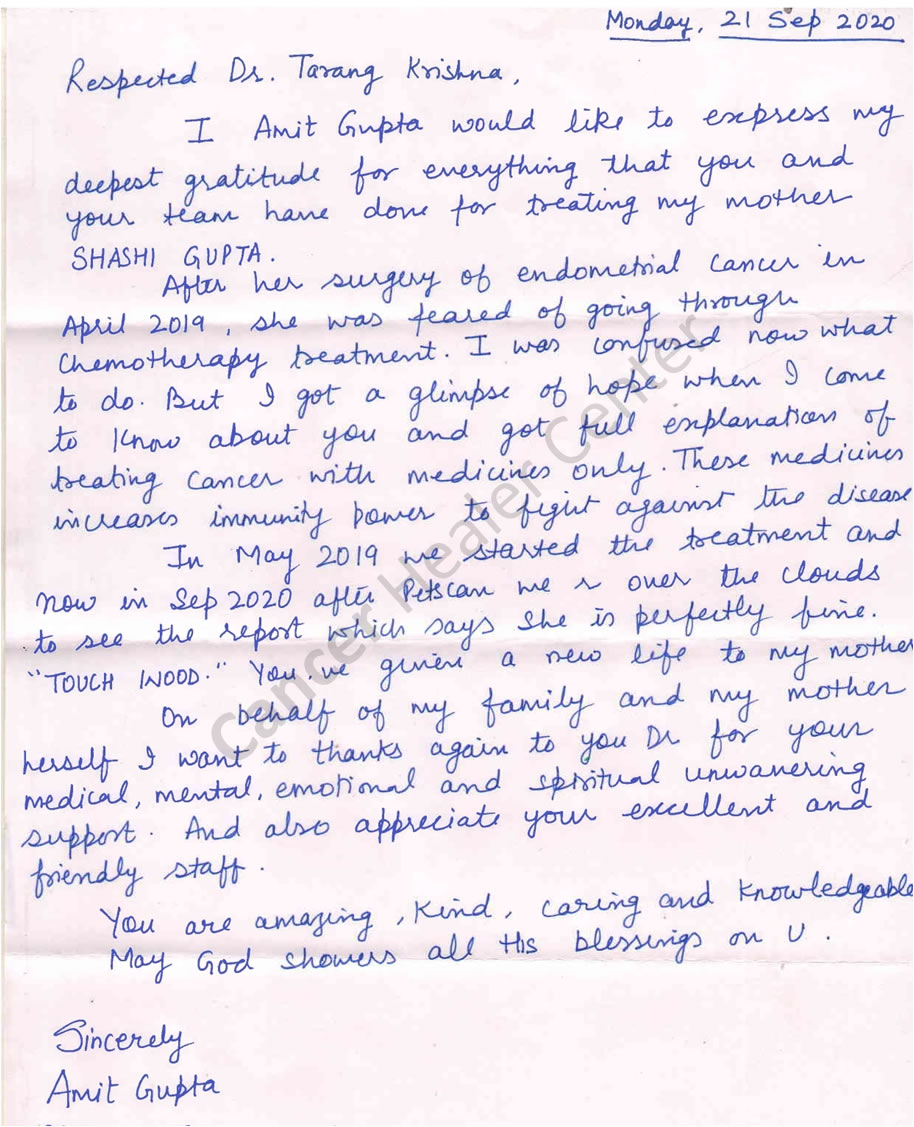 Monday, 21 Sep 2020
Respected Dr. Tarang Krishna,
I Amit Gupta would like to express my
deepest gratitude for everything that you and
your team have done for treating my mother
SHASHI GUPTA.
After her surgery of endometrial cancer in
April 2019, she was feared of going through
Chemotherapy treatment. I was confused now what
to do. But I got a glimpse of hope when I come
to know about you and got full explanation of
treating cancer with medicines only. These medicines
increases immunity power to fight against the disease
In May 2019 we started the treatment and
now in Sep 2020 after Petscan we r over the clouds
to see the report which says she is perfectly fine.
"TOUCH WOOD." You've given a new life to my mother
On behalf of my family and my mother
herself I want to thanks again to you Dr for your
medical, mental, emotional and spiritual unwavering
support. And also appreciate your excellent and
friendly staff.
You are amazing, Kind, caring and knowledgeable
May God showers all His blessings on U.
Sincerely
Amit Gupta
Cancer Healer Center